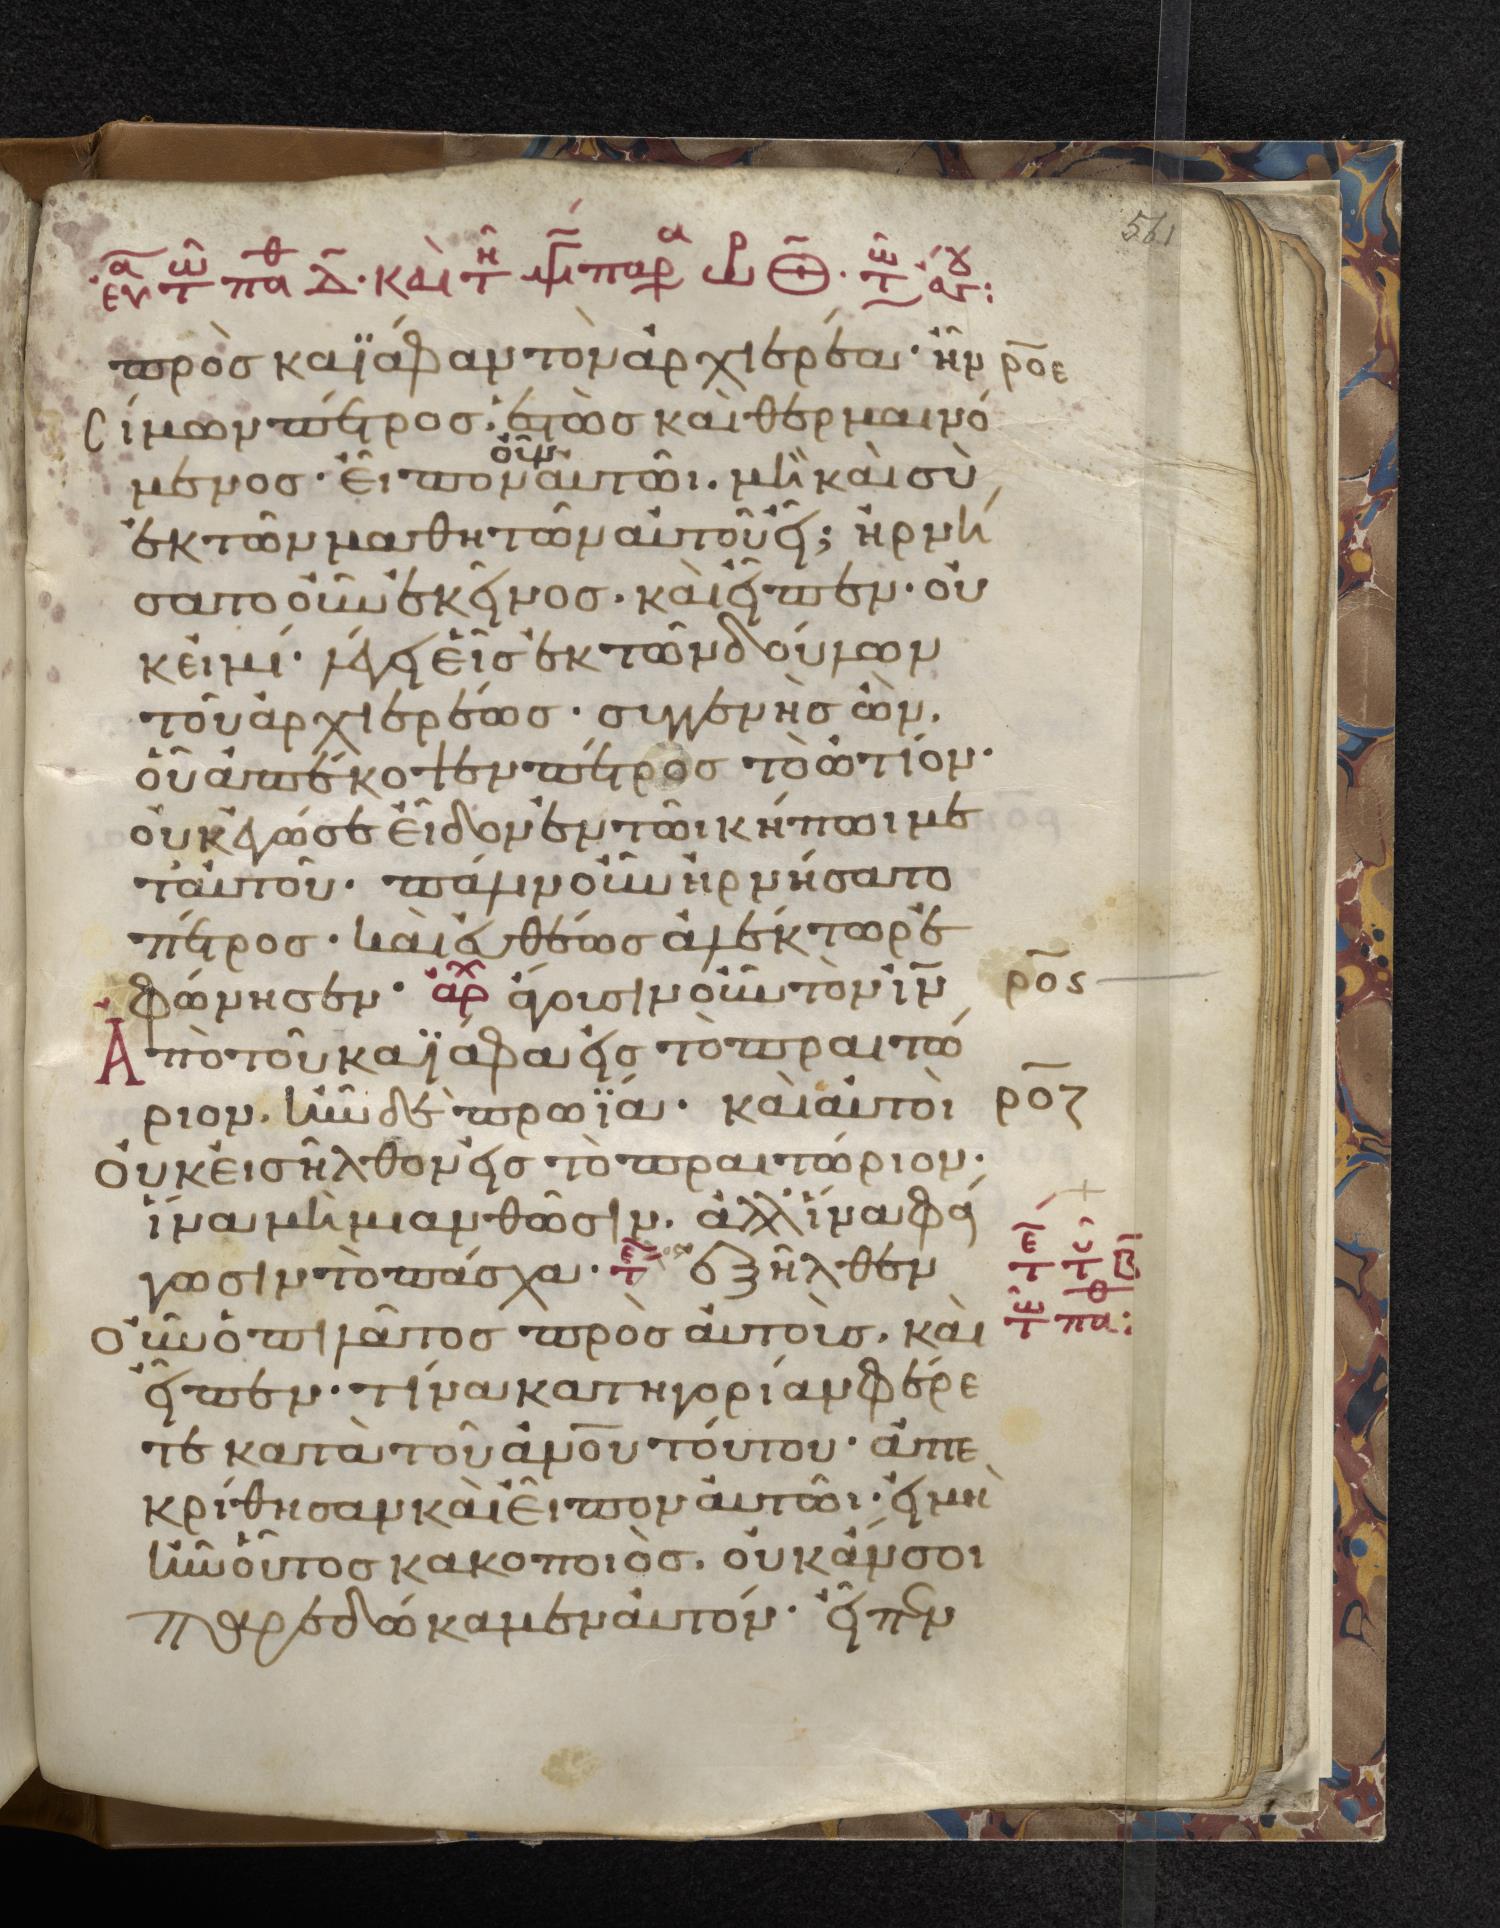 561
πρὸσ καϊάφαν τὸν ἀρχιερέα· ἦν ρ̄ο̄ε
Σίμων πέτροσ· ἑστὼσ καὶ θερμαινό
μενοσ· εἶπον οὖν αὐτῶι. μὴ καὶ σὺ
ἐκ τῶν μαθητῶν αὐτοῦ εἶ; ἠρνή
σατο οὖν ἐκεῖνοσ. καὶ εἶπεν· οὐ
κ εἰμί· λέγει εἷσ ἐκ τῶν δούλων
τοῦ ἀρχιερέωσ· συγγενὴσ ὢν.
οὗ ἀπέκοψεν πέτροσ τὸ ὠτίον·
οὐκ ἐγώ σε εἶδον ἐν τῶι κήπωι με
τ' αὐτοῦ· πάλιν οὖν ἠρνήσατο
πέτροσ· καὶ εὐθέωσ ἀλέκτωρ ἐ
φώνησεν· ἀρχ ἄγουσιν οὖν τὸν ιν ρος
Ἀπὸ τοῦ καϊάφα εἰσ τὸ πραιτώ
ριον. ἦν δὲ πρωϊά· καὶ αὐτοὶ ροζ
Οὐκ εἰσῆλθον εἰσ τὸ πραιτώριον·
ἵνα μὴ μιανθῶσιν. ἀλλ' ἵνα φά
γωσιν τὸ πάσχα· ἐξῆλθεν
Οὖν ὁ πιλᾶτοσ πρὸσ αὐτοὺσ. καὶ
εἶπεν· τίνα κατηγορίαν φέρε
τε κατὰ τοῦ ἀνου τούτου· ἀπε
κρίθησαν καὶ εἶπον αὐτῶι· εἰ μὴ
ἦν οὗτοσ κακοποιὸσ. οὐκ ἄν σοι
παρεδώκαμεν αὐτόν· εἶπεν